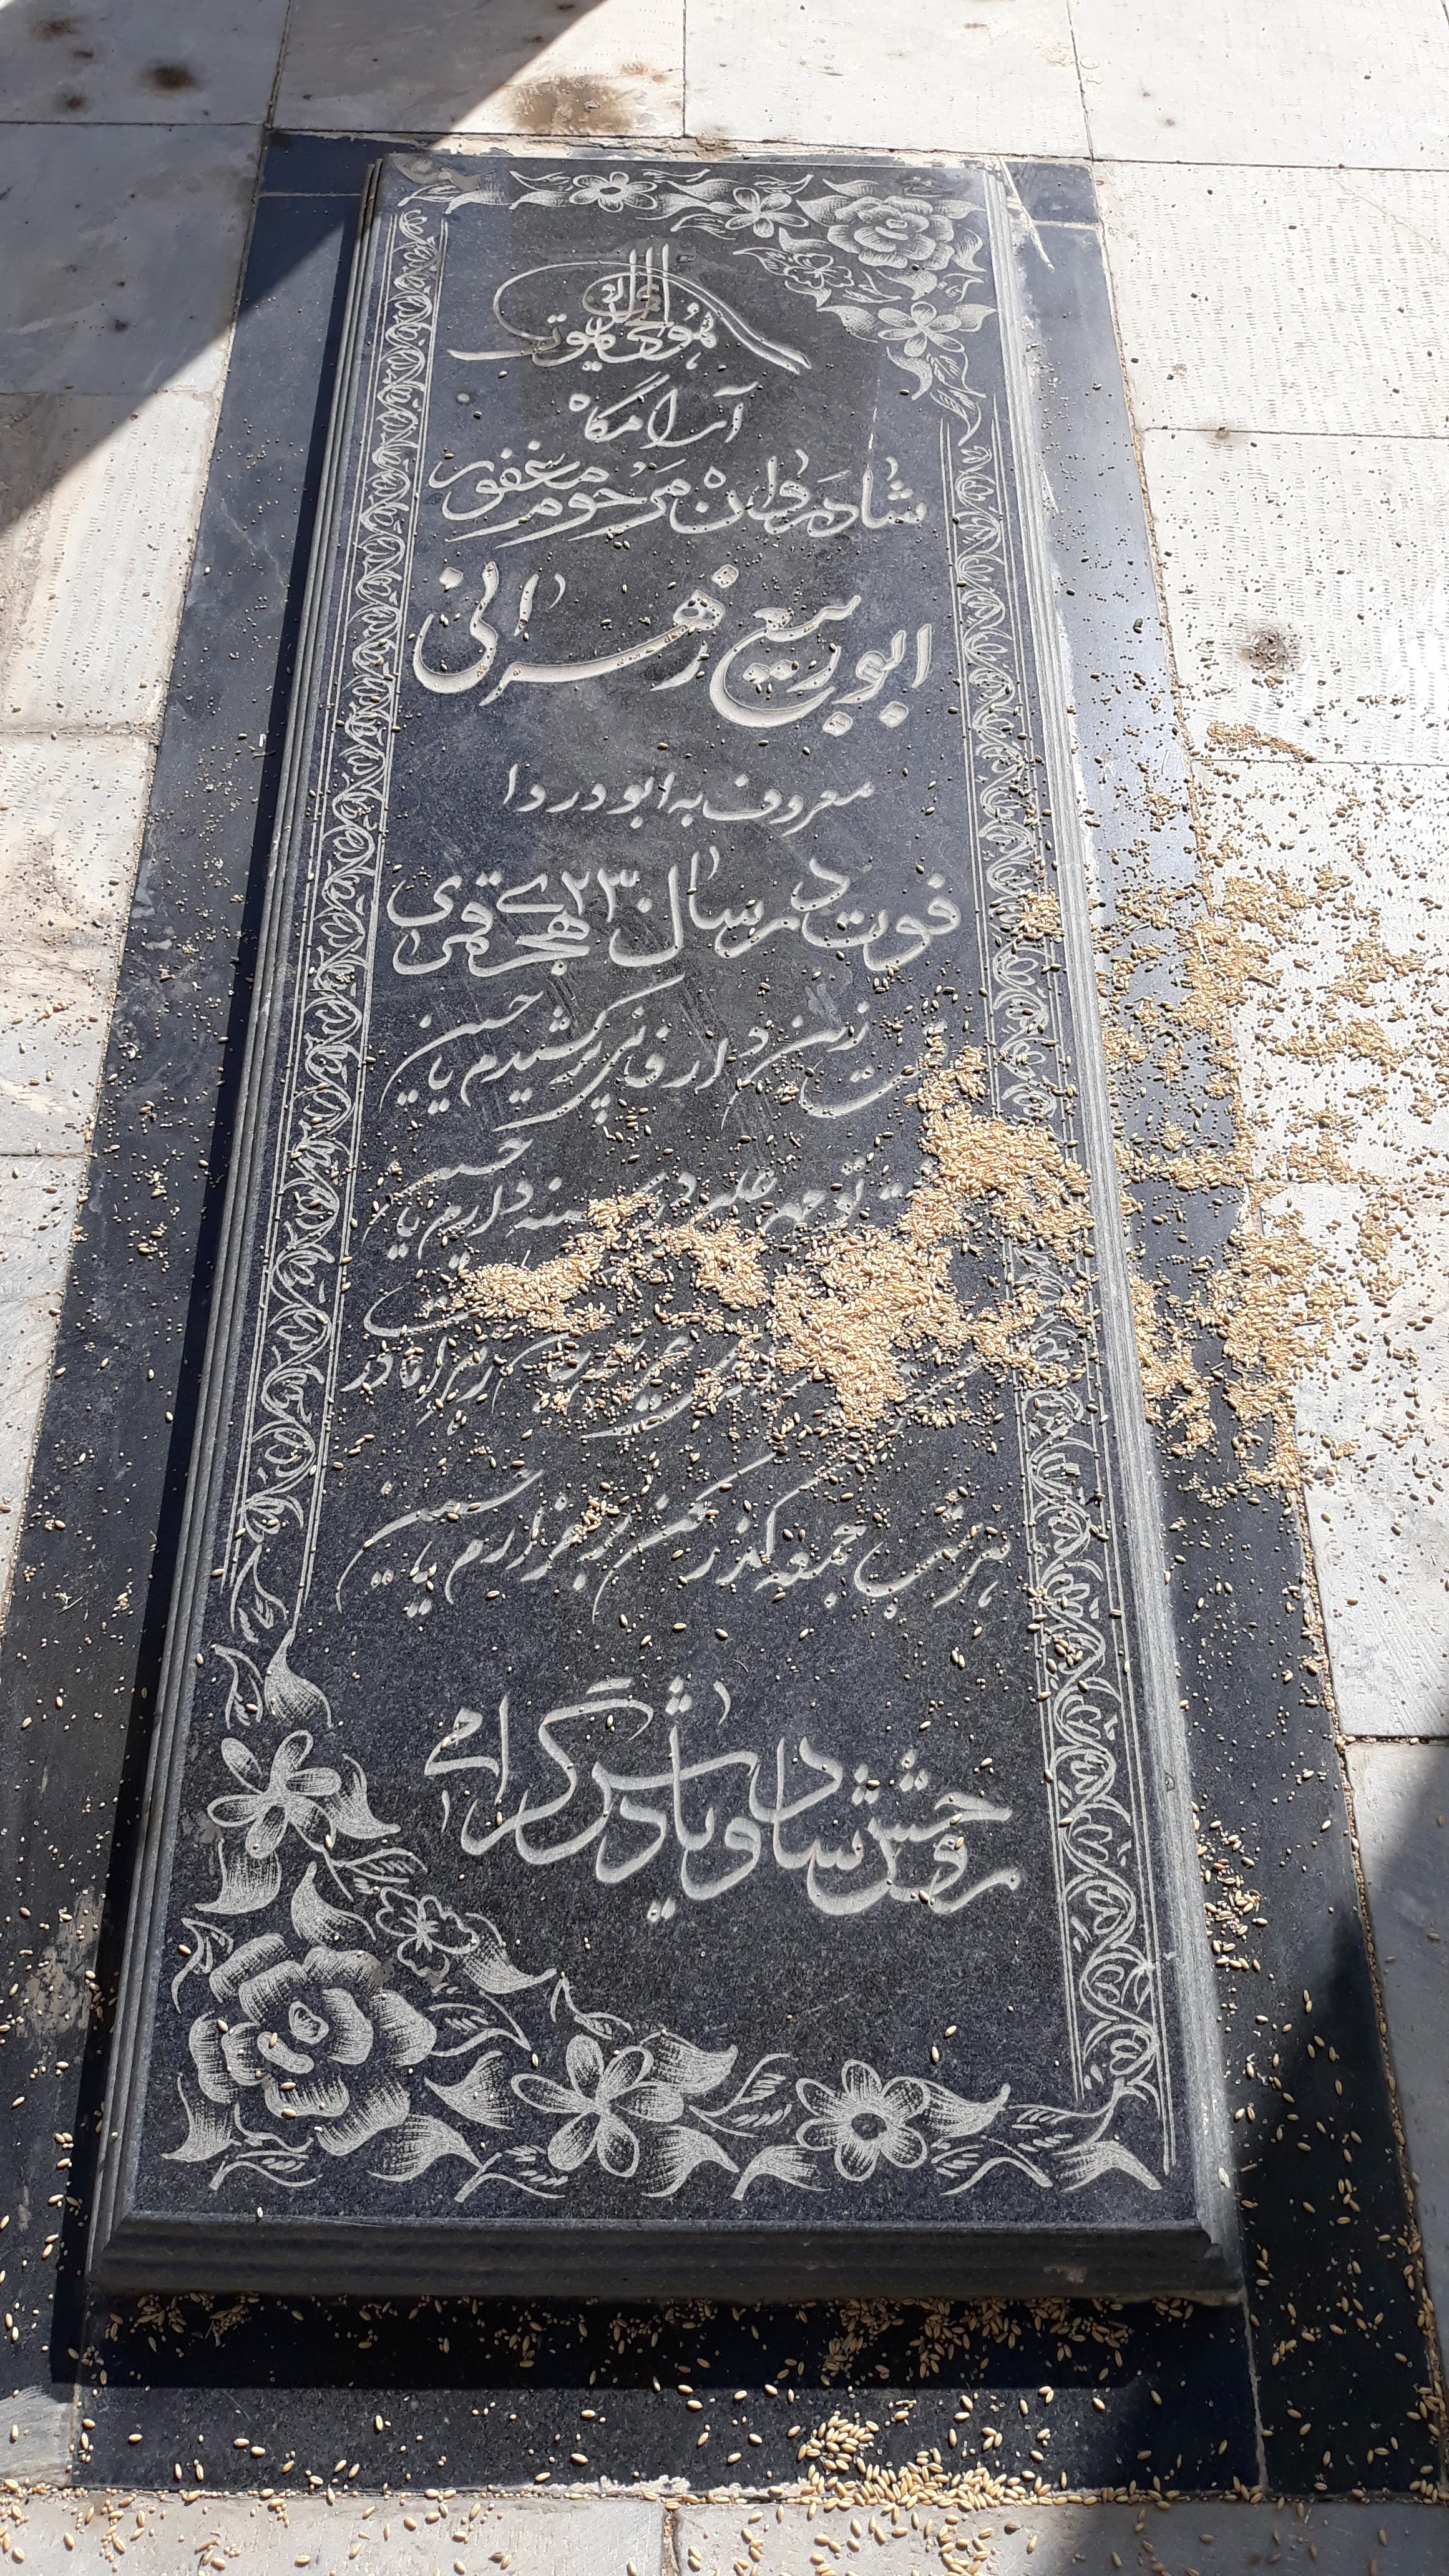 هوالحی الذی لایموت
آرامگاه
شادروان مرحوم مغفور
ابوربیع زهرانی
معروف به ابودردا
فوت در سال ۲۳۰ هجری قمری
دار فانی پر کشیدم یا حسین
توجه دارم یا حسین
هر شب جمعه گذر کن بر مزارم یا حسین
روحش شاد و یادش گرامی